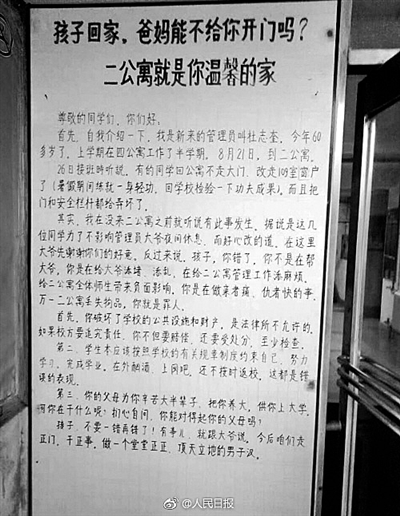 孩子回家，爸妈能不给你开门吗？
二公寓就是你温馨的家
尊敬的同学们，你们好。
首先，自我介绍一下，我是新来的管理员叫杜志奎，今年60
多岁了，上学期在四公寓工作了半学期，8月21日，到二公寓。
26日接班时听说，有的同学回公寓不走大门，改走109室窗户
了（暑假期间练就一身轻功，回学校检验一下功夫成果），而且把
门和安全栏杆都给弄坏了。
其实，我在没来二公寓之前就听说有此事发生，据说是这几
位同学为了不影响管理员大爷夜间休息，而好心改的道，在这里
大爷先谢谢你们的好意。反过来说，孩子，你错了，你不是在帮
大爷，你是在给大爷添堵、添乱，在给二公寓管理工作添麻烦，
给二公寓全体师生带来负面影响，你是在做亲者痛、仇者快的事，
万一二公寓丢失物品，你就是罪人。
首先，你破坏了学校的公共设施和财产，是法律所不允许的，
如果校方要追究责任，你不但要赔偿，还要受处分，至少检查。
第二、学生本应该按照学校的有关规章制度约束自己，努力
学习，完成学业，在外酗酒、上网吧，还不按时返校，这都是错
误的表现。
第三，你的父母为你辛苦大半辈子，把你养大，供你上大学，
可你在干什么呢？扪心自问，你能对得起你的父母吗？
孩子，不要一错再错了！有事儿，就跟大爷说，今后咱们走
正门，干正事，做一个堂堂正正、顶天立地的男子汉。
@人民日报